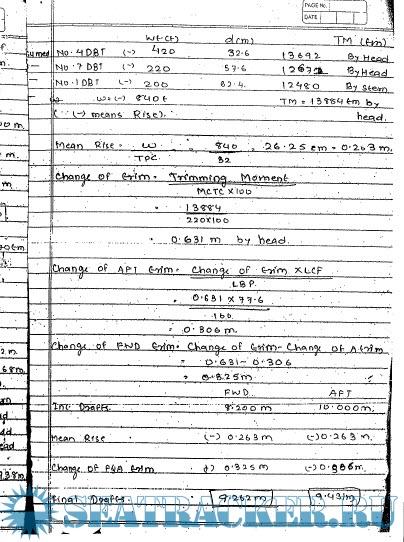 PAGE No.
DATE
Wt (t) d(m) TM (tm)
No. 4 DBT (-) 420 32.6 13692 By Head
No. 7 DBT (-) 220 57.6 12672 By Head
No. 1 DBT (-) 200 62.4 12480 By Stem
w = (-) 840 t TM = 13884 tm by
( (-) means Rise). head.
Mean Rise = W = 840 = 26.25 cm = 0.263 m.
TPC 32
Change of trim = Trimming Moment
MCTC X 100
= 13884
220X100
= 0.631 m by head.
Change of AFT trim = Change of trim X LCF
LBP.
= 0.631 X 77.6
160.
= 0.306 m.
Change of FWD trim = Change of trim - Change of A trim
= 0.631 - 0.306
= 0.325 m
FWD AFT
Ini. Drafts 9.200 m 10.000 m.
Mean Rise (-) 0.263 m (-) 0.263 m.
Change of F&A trim (+) 0.325 m (-) 0.306 m.
Final Drafts 9.262 m 9.431 m
SEATRACKER.RU